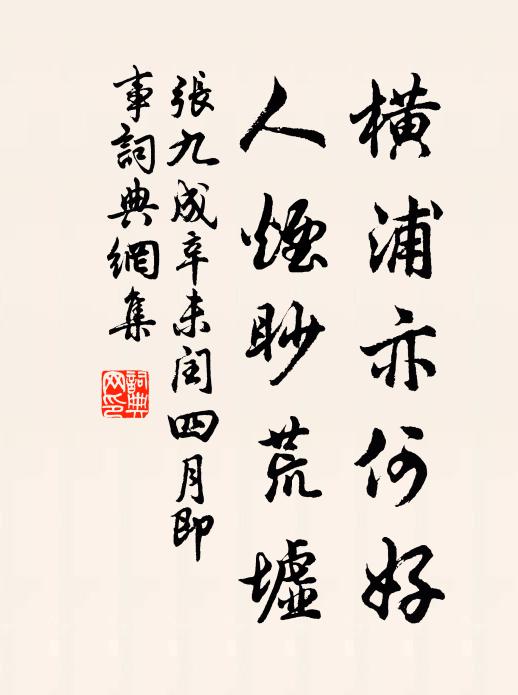 橫浦亦何好
人煙眇荒墟
張九成辛未閏四月即
事詞典網集
詞典
网印